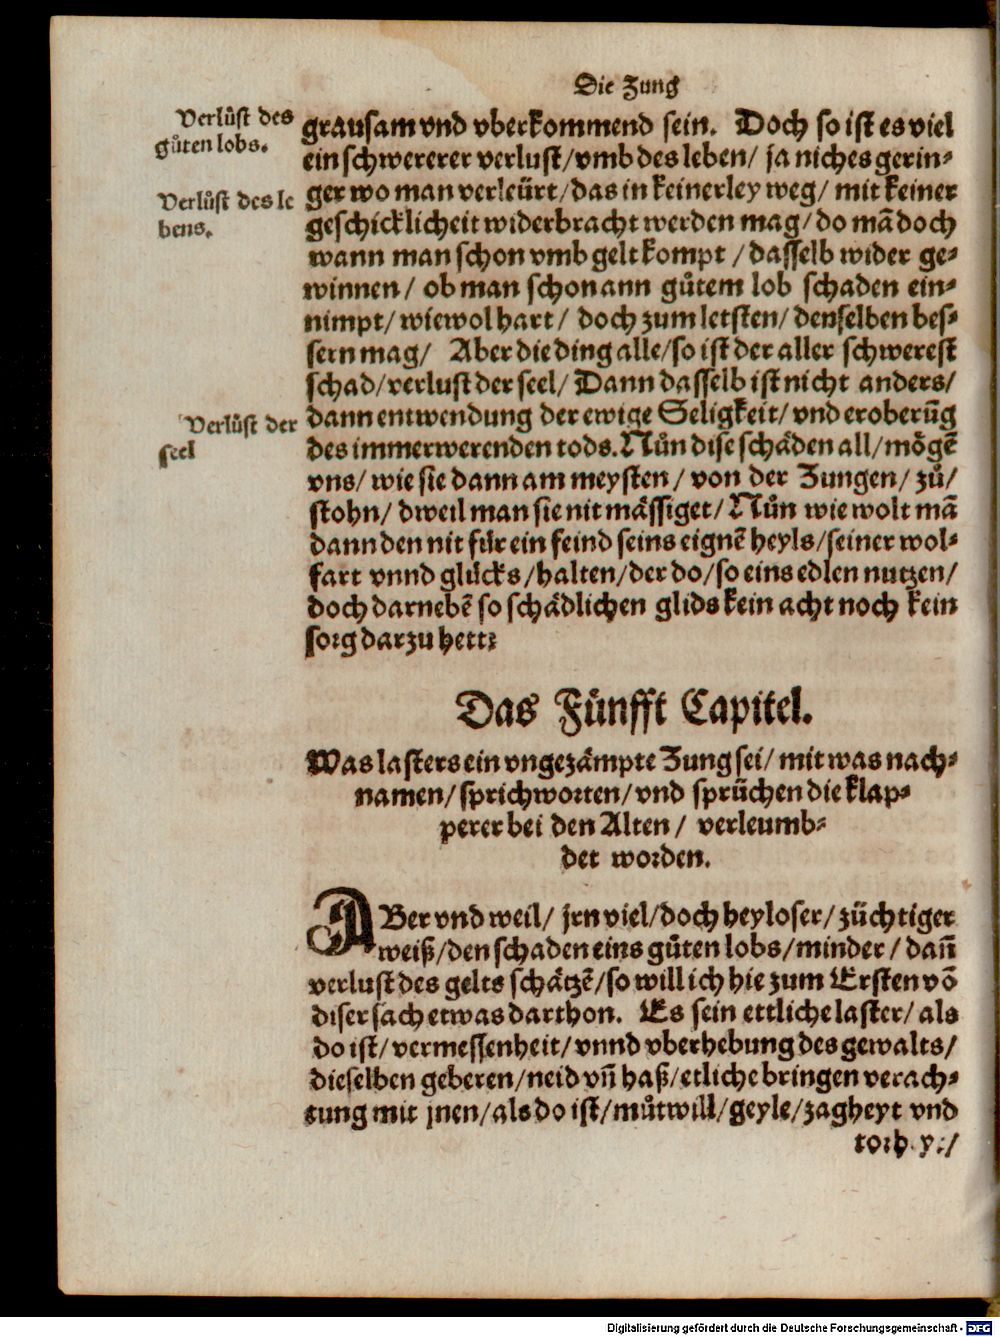 Die Zung
Verlůst des
gůten lobs.
Verlůst des le
bens.
Verlůst der
seel
grausam vnd vberkommend sein. Doch so ist es viel
ein schwererer verlust/vmb des leben/ ja niches gerin⸗
ger wo man verleürt/das in keinerley weg/ mit keiner
geschicklicheit widerbracht werden mag/do mã doch
wann man schon vmb gelt kompt /dasselb wider ge⸗
winnen/ ob man schon ann gůtem lob schaden ein⸗
nimpt/wiewol hart/ doch zum letsten/denselben bes⸗
sern mag/ Aber die ding alle/so ist der aller schwerest
schad/verlust der seel/Dann dasselb ist nicht anders/
dann entwendung der ewige Seligkeit/vnd eroberũg
des immerwerenden tods. Nůn dise schäden all/mögẽ
vns/wie sie dann am meysten/von der Zungen/zů/
stohn/dweil man sie nit mässiget/Nůn wie wolt mã
dann den nit für ein feind seins eignẽ heyls/seiner wol⸗
fart vnnd glücks/halten/der do/so eins edlen nutzen/
doch darnebẽ so schädlichen glids kein acht noch kein
sorg darzu hett?
Das Fünfft Capitel.
Was lasters ein vngezämpte Zung sei/mit was nach⸗
namen/sprichworten/vnd sprüchen die klap⸗
perer bei den Alten/ verleumb⸗
det worden.
ABer vnd weil/ jrn viel/doch heyloser/züchtiger
weiß/den schaden eins gůten lobs/minder/dañ
verlust des gelts schätzẽ/so will ich hie zum Ersten võ
diser sach etwas darthon. Es sein ettliche laster/als
do ist/vermessenheit/vnnd vberhebung des gewalts/
dieselben geberen/neid vñ haß/etliche bringen verach⸗
tung mit jnen/als do ist/můtwill/geyle/zagheyt vnd
Digitalisierung gefördert durch die Deutsche Forschungsgemeinschaft - DFG